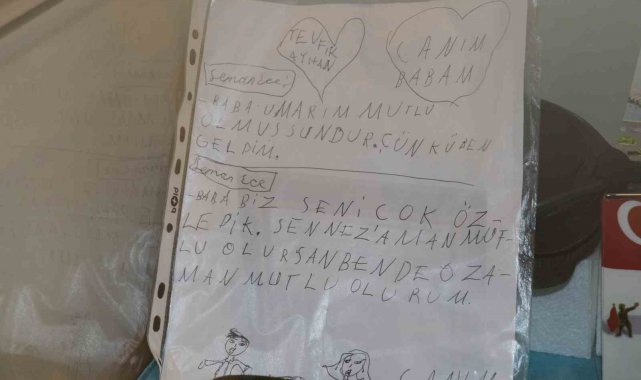 TEVFİK
AYHAN
CANIM
BABAM
Semanece:
- BABA UMARIM MUTLU
OLMUŞSUNDUR. ÇÜNKÜ BEN
GELDİM.
Semanece
- BABA BİZ SENİ COK ÖZ-
LEDİK. SEN NEZ'AMAN MUT-
LU OLURSAN BENDE O ZA-
MAN MUTLU OLURUM.
CANIM